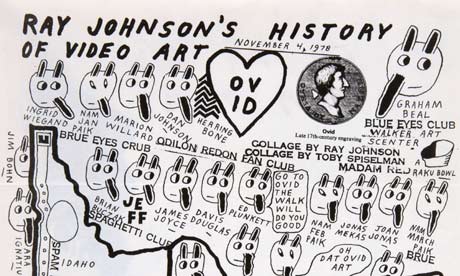 RAY JOHNSON'S HISTORY
OF VIDEO ART
NOVEMBER 4, 1978
OV
ID
Ovid
Late 17th-century engraving
GRAHAM
BEAL
BLUE EYES CLUB
WALKER ART
SCENTER
A
RAKU BOWL
INGRID
WIEGAND
NAM
JAN
PAIK
MARION
WILLARD
JOHNSON
DAN
HERRING
BONE
JIM BOHN
BRUE EYES CRUB
ODILON REDON
FAN CLUB
COLLAGE BY RAY JOHNSON
COLLAGE BY TOBY SPISELMAN
MADAM RED
BRIAN
JE
FF
SPAGHETTI CLUB
JAMES
JOYCE
DAVIS
DOUGLAS
ED
PLUNKETT
GO TO
OVID
THE
WALK
WILL
DO YOU
GOOD
NAM
FEB
PAIK
JONAS
MEKAS
JOAN
JONAS
NAM
MARCH
PAIK
BRUE
OH
DAT OVID
ART
SPAM
IDAHO